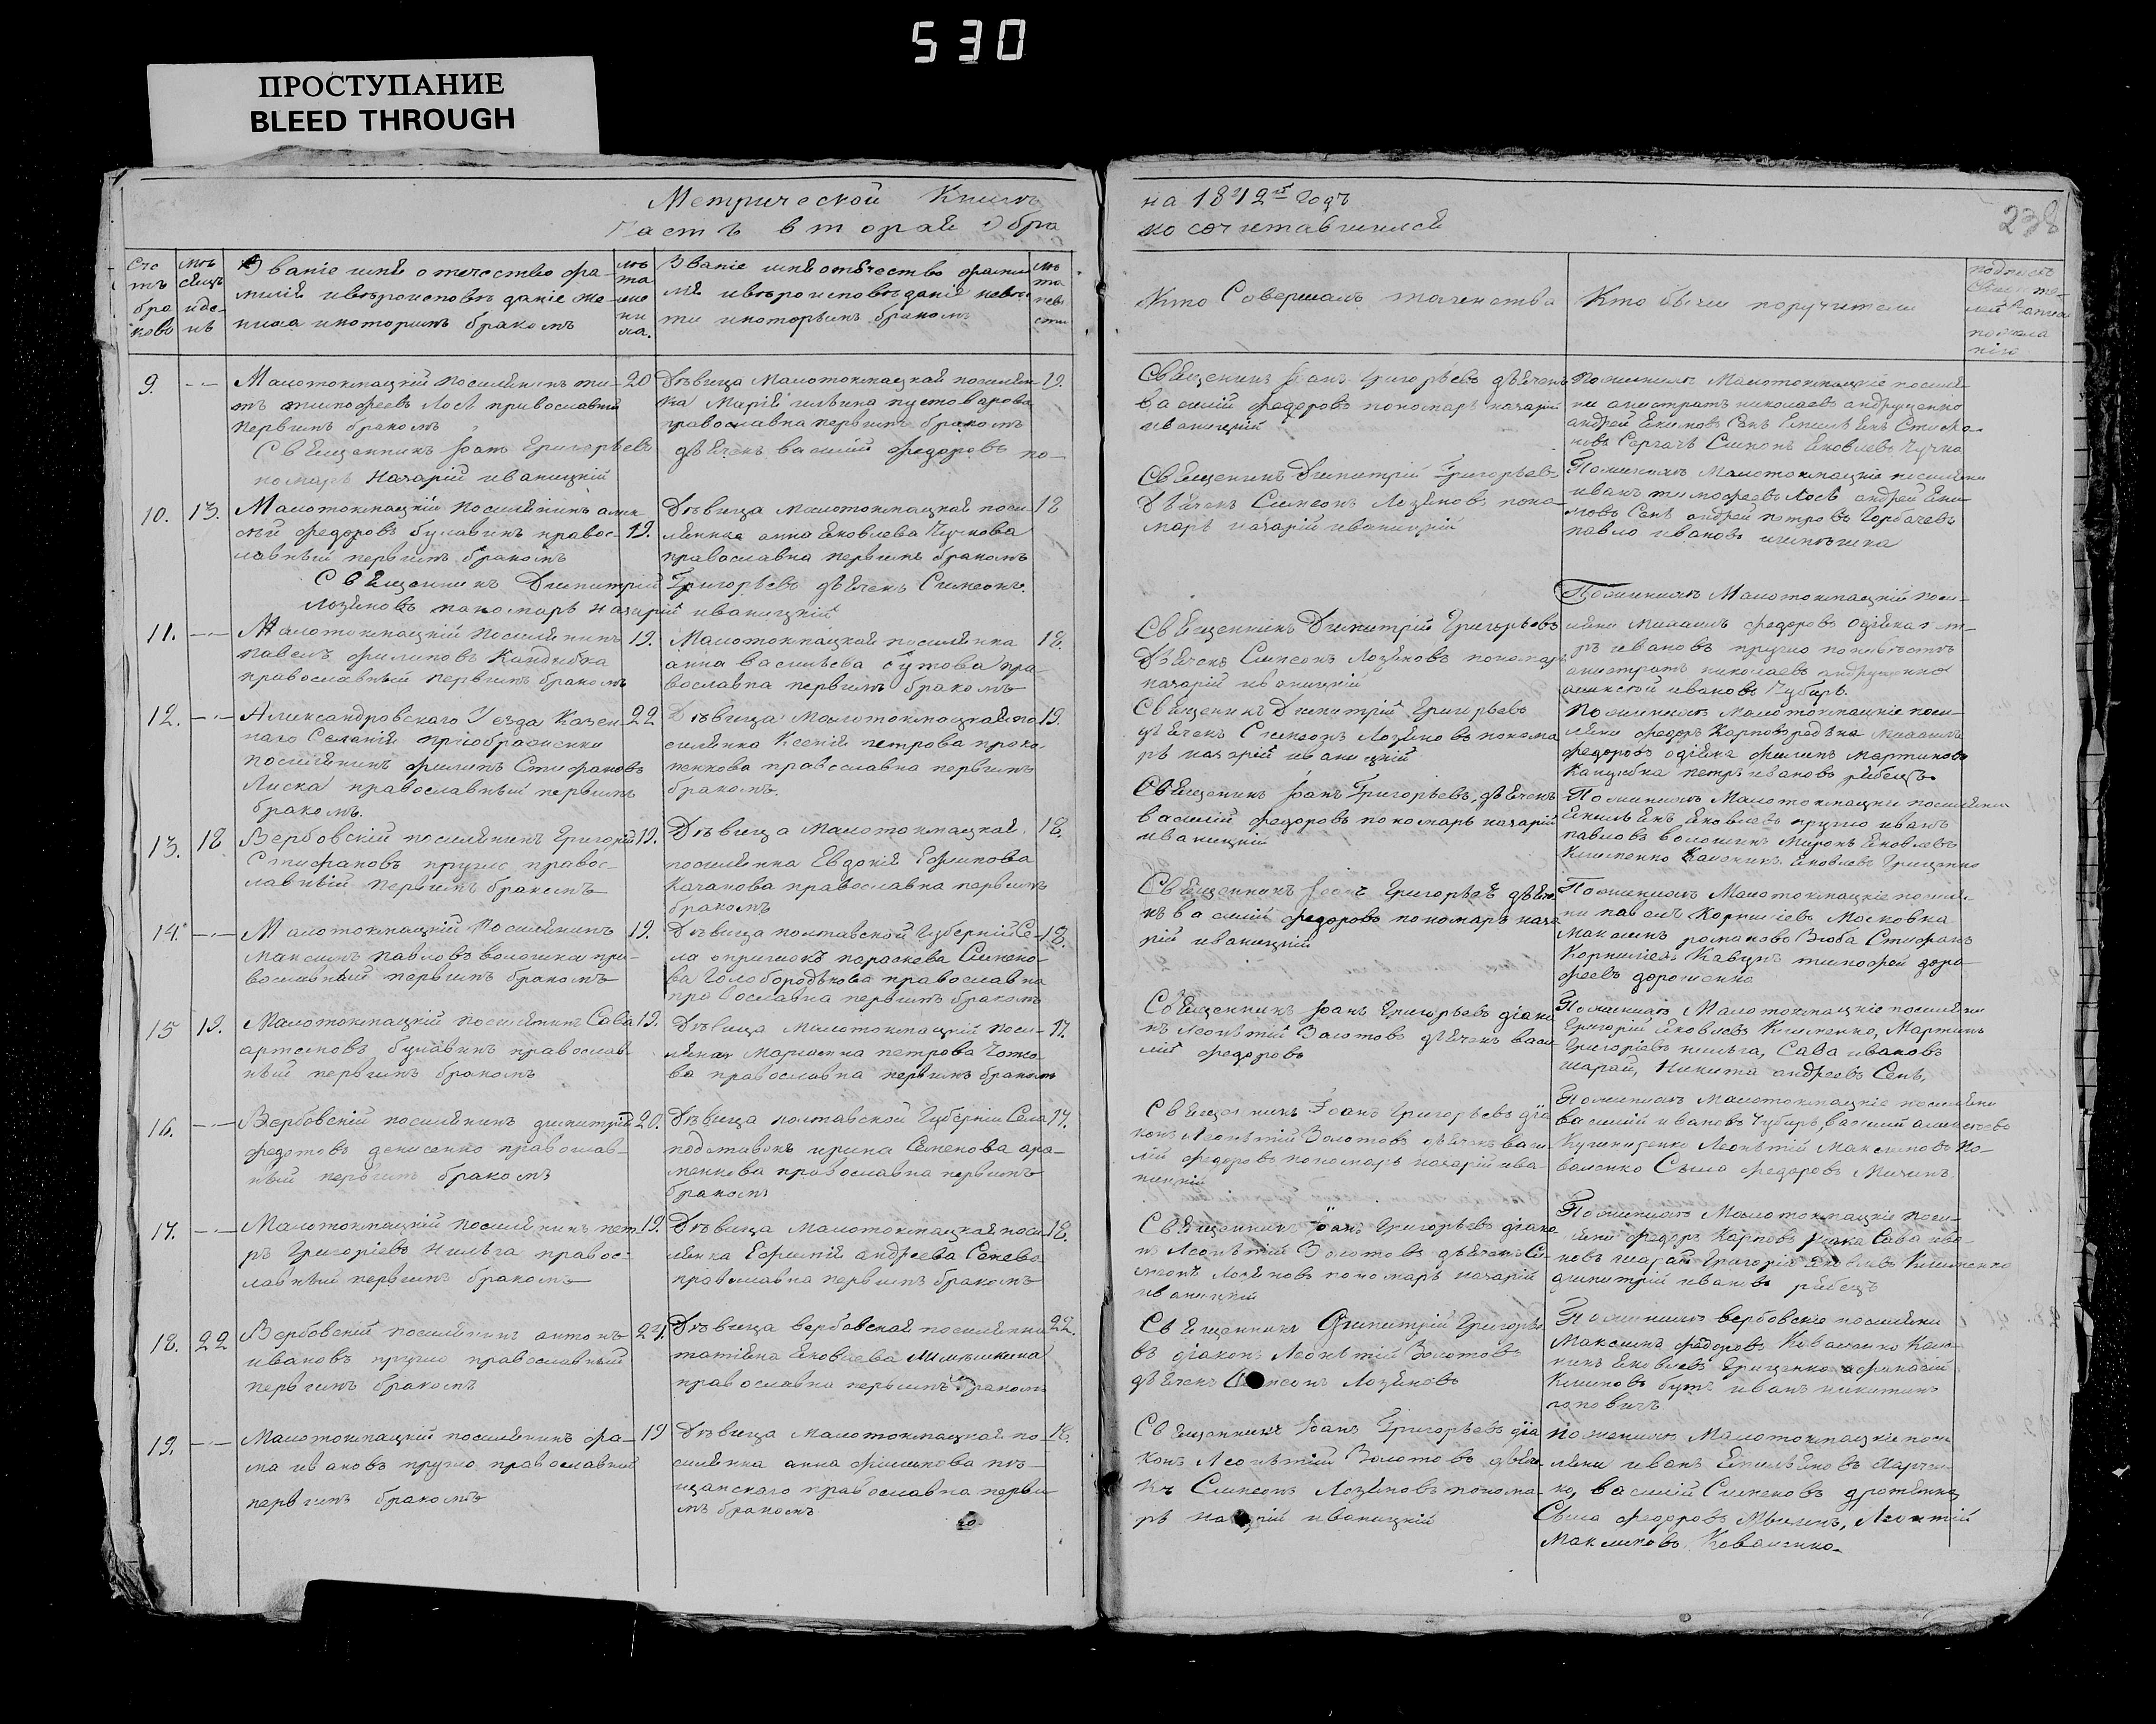 530
ПРОСТУПАНИЕ
BLEED THROUGH
Метрической Книги
Часть вторая О бра
на 1842й годъ
ко сочетавшихся
238
Сче
тъ
бра
ковъ
мѣ
сяцъ
и де
нь
Званіе имя отечество фа
милія и вѣроисповѣданіе же
ниха и которимъ бракомъ
лѣ
та
же
ни
ха.
Званіе имя отечество фами
лія и вѣроисповѣданіе невѣс
ти и которымъ бракомъ
лѣ
та
неве
сти
Кто Совершалъ таинства
Кто были поручители
9.
Малотокмацкій поселянинъ ти- 20
тъ тимофеевъ Лось православный
первимъ бракомъ
Священникъ Іоанъ Григорьевъ дьячекъ василій федоровъ по-
номарь Назарій иваницкій
Дѣвица Малотокмацкая поселян- 19.
ка Марія ильина пустоварова
православна первимъ бракомъ
Священникъ Іоанъ Григорьевъ дьячекъ
василій федоровъ пономарь назарій
иваницкій
Поженихъ Малотокмацкіе поселя-
не николаевъ андрущенко
андрей Екимовъ Сенъ
10. 13.
Малотокмацкій поселянинъ алек
сѣй федоровъ булавинъ правос- 19.
лавный первимъ бракомъ
Священникъ Димитрій Григорьевъ дьячекъ Симеонъ
Лозяновъ пономарь назарій иваницкій
Дѣвица малотокмацкая посе 18
лянка анна Яковлева Пучкова
православна первимъ бракомъ
Священникъ Димитрій Григорьевъ
Дьячекъ Симеонъ Лозяновъ поно-
марь назарій иваницкій
Поженихъ Малотокмацкіе поселяни
иванъ тимофеевъ Лось андрей Еки-
мовъ Сенъ андрей петровъ Горбачевъ
павло ивановъ
11.
Малотокмацкій поселянинъ 19.
павелъ филиповъ Кандибка
православный первимъ бракомъ
Малотокмацкая поселянка 18.
анна васильева бутова пра-
вославна первимъ бракомъ
Священникъ Димитрій Григорьевъ
Дьячекъ Симеонъ Лозяновъ пономарь
назарій иваницкій
Поженихъ Малотокмацкій посе-
ляни Михаилъ федоровъ
ивановъ
николаевъ андрущенко
алексѣй ивановъ Чубирь.
12.
Александровского Уезда Казен- 22
наго Селенія приображенки
поселянинъ филипъ Стефановъ
Лиска православный первимъ
бракомъ.
Дѣвица Малотокмацкая по- 19.
селянка Ксенія петрова проко-
пенкова православна первимъ
бракомъ.
Священникъ Димитрій Григорьевъ
дьячекъ Симеонъ Лозяновъ понома
рь назарій иваницкій
Поженихъ Малотокмацкіе посе-
ляни федоръ Карповъ Михаилъ
федоровъ филипъ Мартиновъ
Кандибка петръ ивановъ рибецъ
13. 18
Вербовскій поселянинъ Григорій 19.
Стефановъ пругло правос-
лавный первимъ бракомъ
Дѣвица Малотокмацкая 18.
поселянка Евдокія Ефимова
Качанова православна первимъ
бракомъ
Священникъ Іоанъ Григорьевъ дьячекъ
василій федоровъ пономарь назарій
иваницкій
Поженихъ Малотокмацки поселяни
Яковлевъ пругло иванъ
павловъ волошинъ Миронъ Яковлевъ
Клименко Калоника Яковлевъ Грищенко
14.
Малотокмацкій поселянинъ 19.
Максимъ павловъ волошка пра-
вославный первимъ бракомъ
Дѣвица полтавской Губерніи Се- 18.
ла опришокъ пороскева Симеоно-
ва Голобородькова православна
православна первимъ бракомъ
Священникъ Іоанъ Григорьевъ дьяче
къ василій федоровъ пономарь наза
рій иваницкій
Поженихъ Малотокмацкіе поселя-
ни павелъ Корнилѣевъ Московка
Максимъ романовъ Зюба Стефанъ
Корнилѣевъ Кавунъ тимофей доро-
феевъ дорошенко
15 19.
Малотокмацкій поселянинъ Сава 19.
артемовъ булавинъ православ-
ный первимъ бракомъ
Дѣвица Малотокмацкій посе- 17.
лянка Марфа петрова
ва православна первимъ бракомъ
Священникъ Іоанъ Григорьевъ діако
нъ Леонтій Золотовъ дьячекъ васи-
лій федоровъ
Поженихъ Малотокмацкіе поселяни
Григорій Яковлевъ Клименко, Мартинъ
Григоріевъ нильга, Сава ивановъ
шарай, Никита андреевъ Сенъ,
16.
Вербовскій поселянинъ димитрій 20.
федотовъ денисенко православ-
ный первимъ бракомъ
Дѣвица полтавской Губерніи Села 17.
подставокъ ирина Семенова
православна первимъ
бракомъ
Священникъ Іоанъ Григорьевъ діа
конъ Леонтій Золотовъ дьячекъ васи
лій федоровъ пономарь назарій ива-
ницкій
Поженихъ Малотокмацкіе поселяни
василій ивановъ Чубирь, василій алексѣевъ
Леонтій Максимовъ Ко-
валенко Сыла федоровъ
17.
Малотокмацкій поселянинъ пет- 19.
ръ Григоріевъ нильга правос-
лавный первимъ бракомъ
Дѣвица Малотокмацкая посе- 18.
лянка Ефимія андреева Сенева
православна первимъ бракомъ
Священникъ Іоанъ Григорьевъ діако
нъ Леонтій Золотовъ дьячекъ Си-
меонъ Лозяновъ пономарь назарій
иваницкій
Поженихъ Малотокмацкіе посе-
ляни федоръ Карповъ Сава ива-
новъ шарай Григорій Яковлевъ Клименко
димитрій ивановъ рибецъ
18. 22
Вербовскій поселянинъ антонъ 24.
ивановъ пругло православный
первимъ бракомъ
Дѣвица вербовская поселянка 22.
татіяна Яковлева
православна первимъ бракомъ
Священникъ Димитрій Григорье
въ діаконъ Леонтій Золотовъ
дьячекъ Симеонъ Лозяновъ
Поженихъ вербовскіе поселяни
Максимъ федоровъ Коваленко Кало
никъ Яковлевъ Грищенко афанасій
Климовъ бутъ иванъ никитинъ
поповичъ
19.
Малотокмацкій поселянинъ фо- 19
ма ивановъ пругло православный
первимъ бракомъ
Дѣвица Малотокмацкая по- 18.
селянка анна филипова
православна перви
мъ бракомъ
Священникъ Іоанъ Григорьевъ діа
конъ Леонтій Золотовъ дьяче-
къ Симеонъ Лозяновъ понома-
рь назарій иваницкій
Поженихъ Малотокмацкіе посе
ляни иванъ Емельяновъ Харчен-
ко, василій Симеоновъ
Сыла федоровъ Леонтій
Максимовъ Коваленко